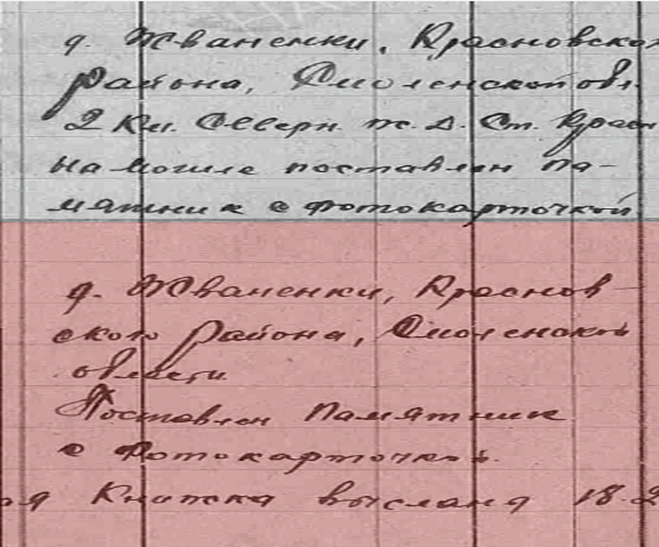 д. Жваненки, Красновско
района, Смоленской обл.
2 км. Северн. ж. д. ст. Красн
На могиле поставлен па-
мятник с фотокарточкой
д. Жваненки, Краснов-
ского района, Смоленской
области.
Поставлен памятник
с фотокарточкой.
ая книжка выслана 18.2